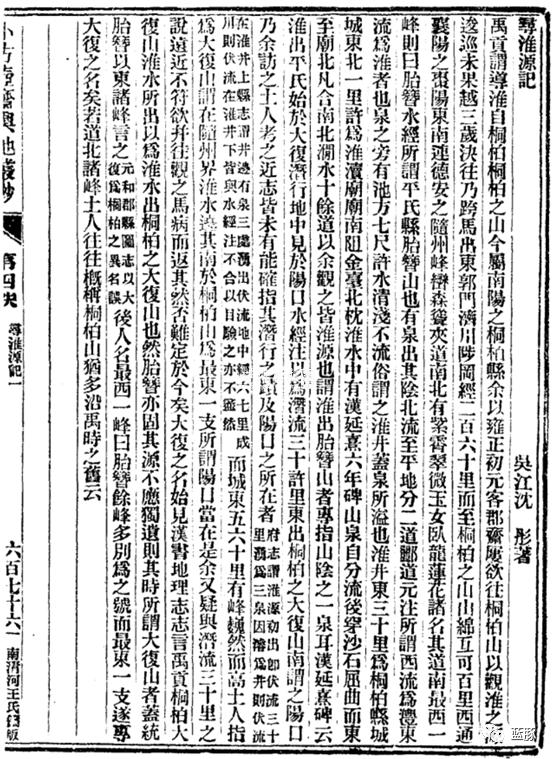 尋淮源記
吳江沈　彤著
禹貢謂導淮自桐柏桐柏之山今屬南陽之桐柏縣余以雍正初元客郡齋屢欲往桐柏山以觀淮之源
逡巡未果越三歲決往乃跨馬出東郭門濟川陟岡經二百六十里而至桐柏之山山綿亙可百里西通
襄陽之棗陽東南連德安之隨州峰巒森聳夾道南北有累霄翠微玉女臥龍蓮花諸名其道南最西一
峰則曰胎簪水經所謂平氏縣胎簪山也有泉出其陰北流至平地分二道酈道元注所謂西流為澧東
流為淮者也泉之旁有池方七尺許水清淺不流俗謂之淮井蓋泉所溢也淮井東三十里為桐柏縣城
城東北一里許為淮瀆廟廟南阻金臺北枕淮水中有漢延熹六年碑山泉自分流後穿沙石屈曲而東
至廟北凡合南北澗水十餘道以余觀之皆淮源也謂淮出胎簪山者專指山陰之一泉耳漢延熹碑云
淮出平氏始於大復潛行地中見於陽口水經注以為潛流三十許里東出桐柏之大復山南謂之陽口
乃余訪之土人考之近志皆未有能確指其潛行之蹟及陽口之所在者
府志謂淮源初出卽伏流三十里湧為三泉因濬為井則伏流
在淮井上縣志謂井邊有泉三處湧出伏流地中經六七里成川則伏流在淮井下皆與水經注不合以目驗之亦不盡然
而城東五六十里有峰巍然而高土人指
為大復山謂在隨州界淮水遶其南於桐柏山為最東一支所謂陽口當在是余又疑與潛流三十里之
說遠近不符欲幷往觀之馬病而返其然否難定於今矣大復之名始見漢書地理志志言禹貢桐柏大
復山淮水所出以為淮水出桐柏之大復山也然胎簪亦固其源不應獨遺則其時所謂大復山者蓋統
胎簪以東諸峰言之
元和郡縣圖志以大復為桐柏之異名誤
後人名最西一峰曰胎簪餘峰多別為之號而最東一支遂專
大復之名矣若道北諸峰土人往往概稱桐柏山猶多沿禹時之舊云
小方壺齋輿地叢鈔
第四帙
尋淮源記一
六百七十六
南清河王氏鑄版
蓝莎